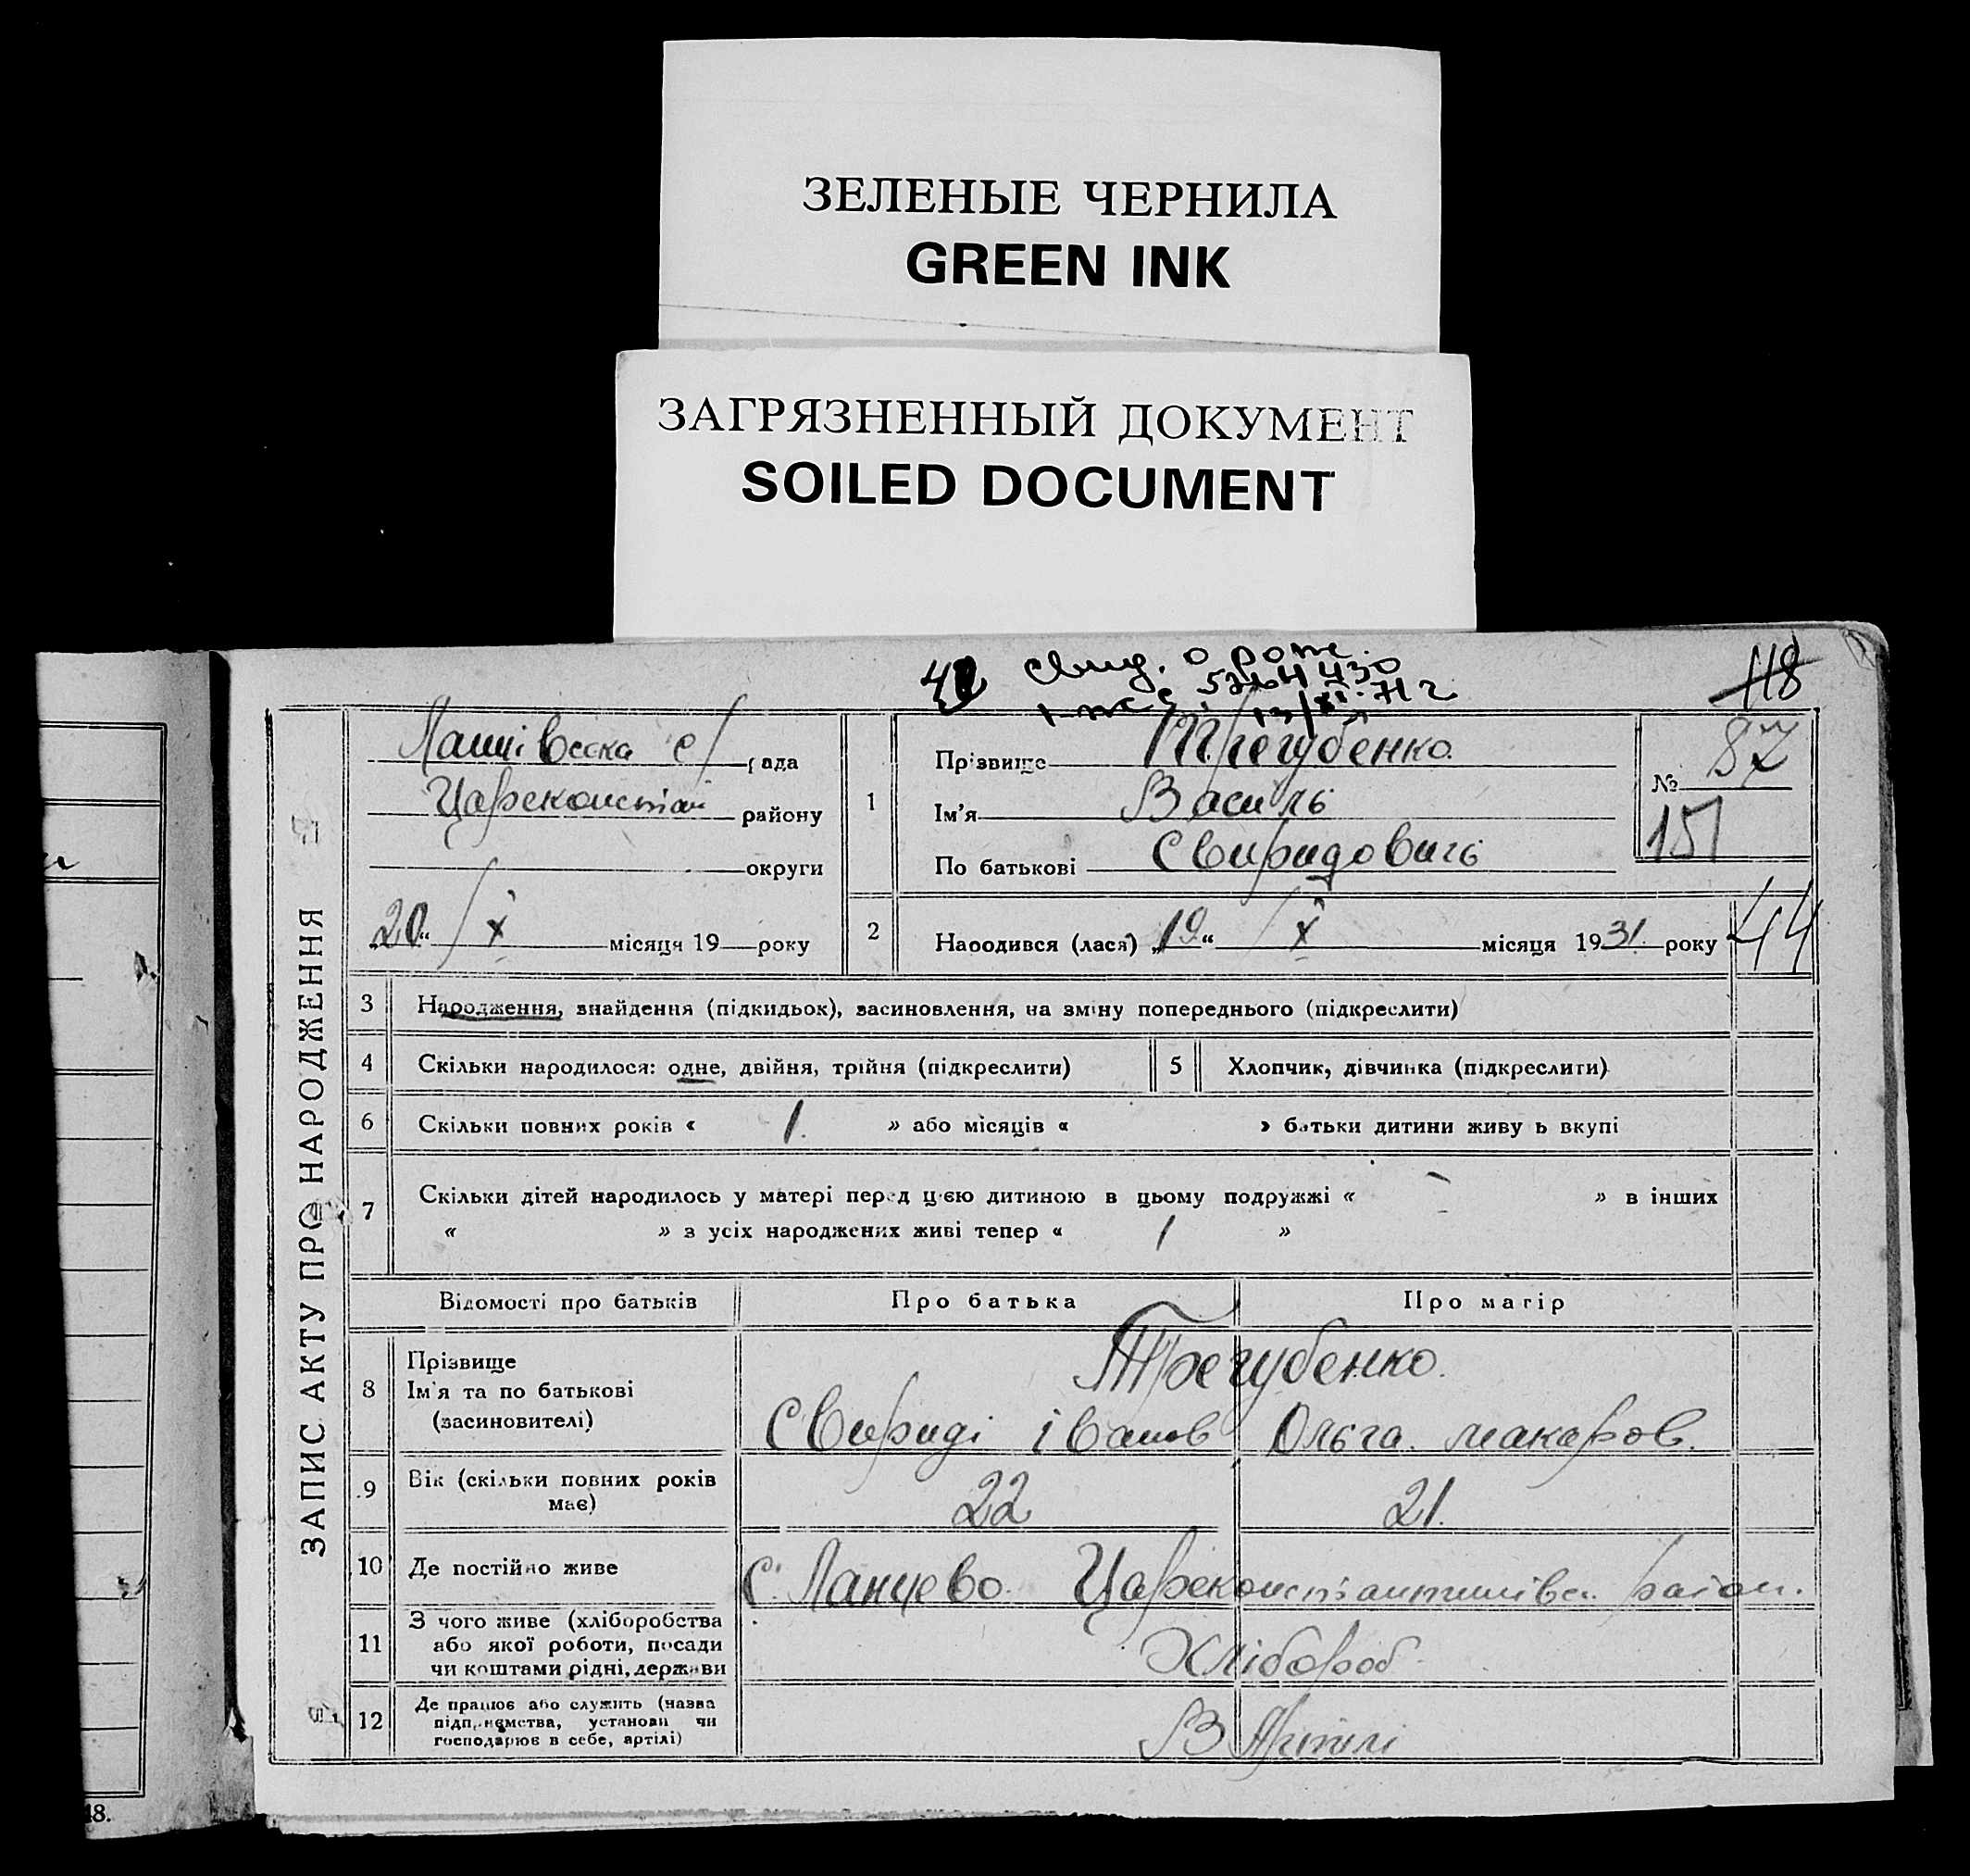 ЗЕЛЕНЫЕ ЧЕРНИЛА
GREEN INK
ЗАГРЯЗНЕННЫЙ ДОКУМЕНТ
SOILED DOCUMENT
118
рада
Царекостян району
округи
20 " / X місяця 19 року
ЗАПИС АКТУ ПРО НАРОДЖЕННЯ
1
Прізвище Трегубенко
Ім'я Василь
По батькові Свиридовичь
№ 87
151
2
Народився (лася) „ 19 " / X місяця 1931 року
44
3 Народження, знайдення (підкидьок), засиновлення, на зміну попереднього (підкреслити)
4 Скільки народилося: одне, двійня, трійня (підкреслити)
5 Хлопчик, дівчинка (підкреслити)
6 Скільки повних років « 1 » або місяців « » батьки дитини живуть вкупі
7 Скільки дітей народилось у матері перед цією дитиною в цьому подружжі « - » в інших
« » з усіх народжених живі тепер « 1 »
Відомості про батьків Про батька Про матір
8 Прізвище
Ім'я та по батькові
(засиновителі)
Трегубенко
Свириді Іванов Ольга Макаров.
9 Вік (скільки повних років
має)
22 21.
10 Де постійно живе
С. Ланцево Цареконстянтинівск. район.
11 З чого живе (хліборобства
або якої роботи, посади
чи коштами рідні, держави
Хлібороб
12 Де працює або служить (назва
підприємства, установи чи
господарює в себе, артілі)
В Артилі
48.